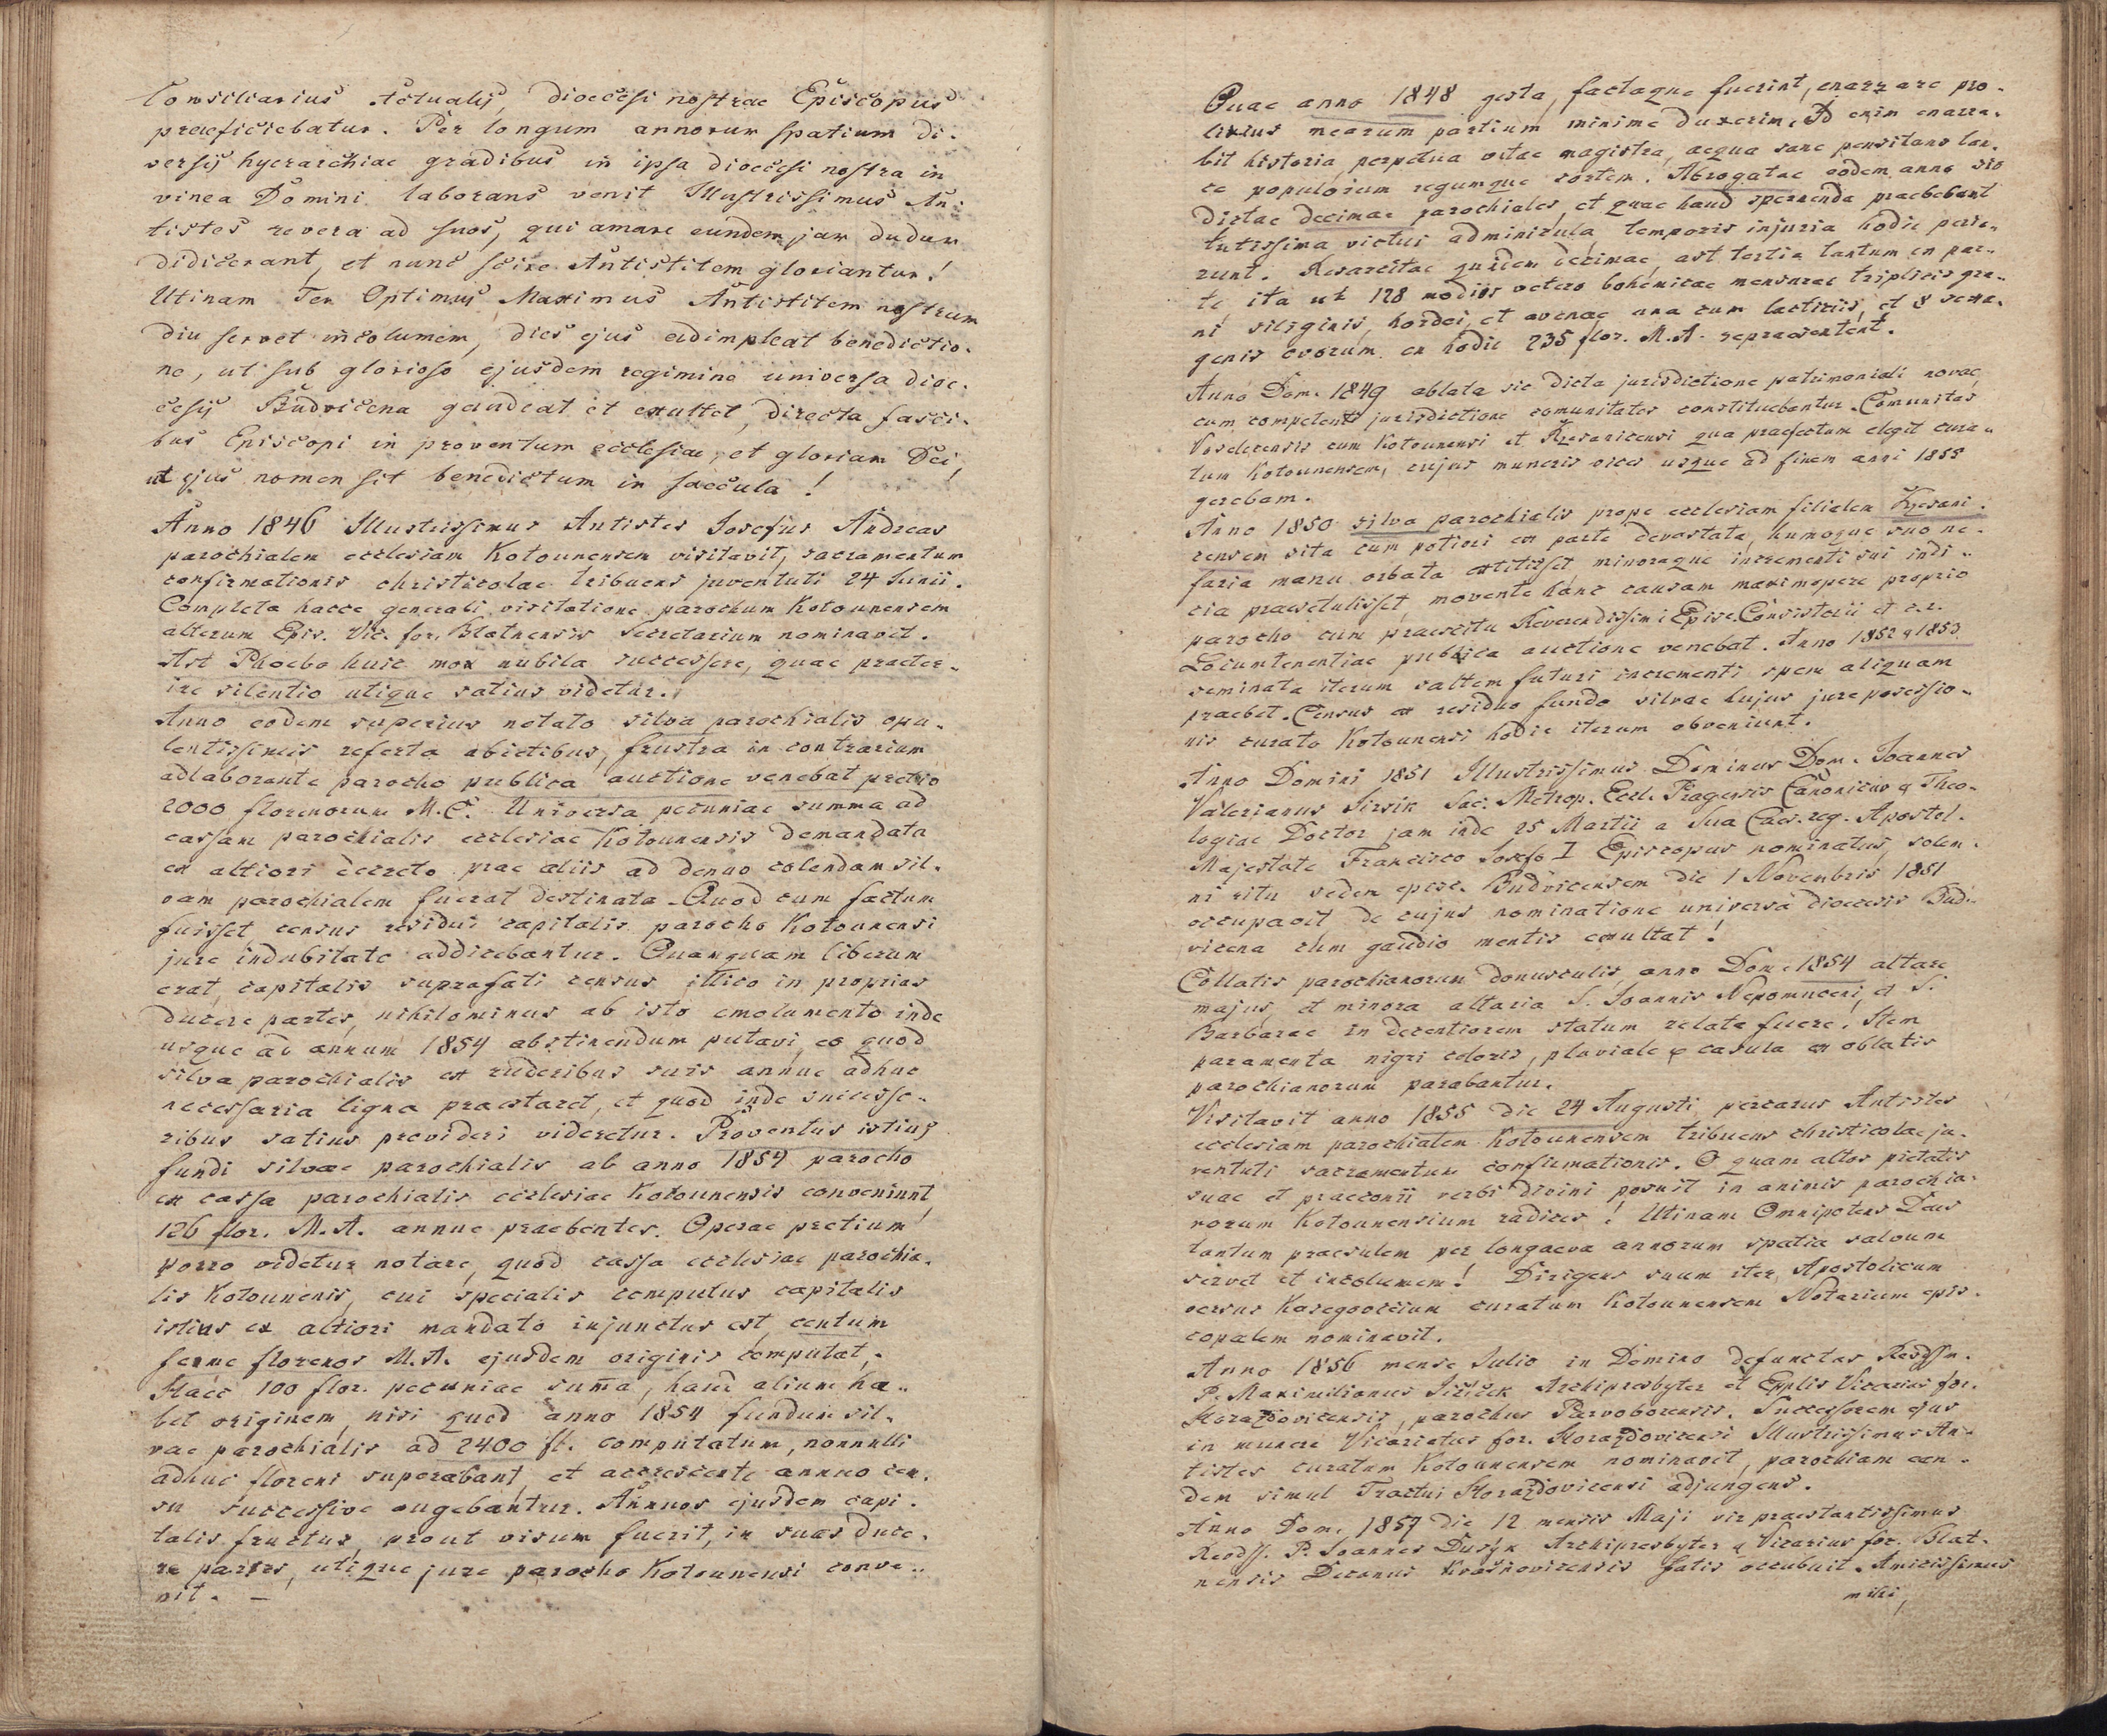 Consiliarius Actualis, dioecesi nostrae Episcopus
praeficiebatur. Per longum annorum spatium di-
versis hyerarchiae gradibus in ipsa dioecesi nostra in
vinea Domini laborans venit Illustrissimus An-
tistes revera ad suos, qui amare eundem jam dudum
didicerant, et nunc scire Antistitem gloriantur!
Utinam Ter Optimus, Maximus Antistitem nostrum
diu servet incolumem, dies ejus adimpleat benedictio-
ne, ut sub glorioso ejusdem regimine universa dioe-
cesis Budvicena gaudeat et exultet, directa fasci-
bus Episcopi in proventum ecclesiae, et gloriam Dei,
ut ejus nomen sit benedictum in saecula!
Anno 1846 Illustrissimus Antistes Josefus Andreas
parochialem ecclesiam Kotounensem visitavit, sacramentum
confirmationis christicolae tribuens juventuti 24 Junii.
Completa hacce generali visitatione parochum Kotounensem
alterum Epis. Vic. for. Blatnensis Secretarium nominavit.
Ast Phoebo huic mox nubila successere, quae praeter-
ire silentio utique satius videtur.
Anno eodem superius notato silva parochialis opu-
lentissimis referta abietibus, frustra in contrarium
adlaborante parocho publica auctione venebat pretio
2000 florenorum M.C. Universa pecuniae summa ad
cassam parochialis ecclesiae Kotounensis demandata
ex altiori decreto prae aliis ad denuo colendam sil-
vam parochialem fuerat destinata. Quod cum factum
fuisset census residui capitalis parocho Kotounensi
jure indubitato addicebantur. Quamquam liberum
erat, capitalis suprafati census illico in proprias
ducere partes, nihilominus ab isto emolumento inde
usque ad annum 1854 abstinendum putavi, eo quod
silva parochialis ex ruderibus suis annue adhuc
necessaria ligna praestaret, et quod inde successo-
ribus satius provideri videretur. Proventus istius
fundi silvae parochialis ab anno 1854 parocho
ex cassa parochialis ecclesiae Kotounensis conveniunt,
126 flor. M.A. annue praebentes. Operae pretium
porro videtur notare, quod cassa ecclesiae parochia-
lis Kotounenis, cui specialis computus capitalis
istius ex altiori mandato injunctus est, centum
ferme florenos M.A. ejusdem originis computat.
Haec 100 flor. pecuniae suma, haud alium ha-
bet originem, nisi quod anno 1854 fundum sil-
vae parochialis ad 2400 fl. computatum, nonnulli
adhuc floreni superabant, et accrescente annuo cen-
su successive augebantur. Annuos ejusdem capi-
talis fructus, prout visum fuerit, in suas duce-
re partes, utique jure parocho Kotounensi conve-
nit. —
Quae anno 1848 gesta, factaque fuerint, enarrare pro-
lixius mearum partium minime duxerim. Id enim enarra-
bit historia, perpetua vitae magistra, aequa sane pensitans lan-
ce populorum regumque sortem. Abrogatae eodem anno sic
dictae decimae parochiales, et quae haud spernenda praebebant
tutissima victus adminicula, temporis injuria hodie perie-
runt. Resarcitae quidem decimae, ast tertia tantum ex par-
te, ita ut 128 modios veteris bohemicae mensurae triplicis gra-
ni siliginis, hordei, et avenae una cum lacticiis, et 8 sexa-
genis ovorum ex hodie 235 flor. M.A. repraesentent.
Anno Dom. 1849 ablata sic dicta jurisdictione patrimoniali novae,
cum competenti jurisdictione comunitates constituebantur. Comunitas
Voselecensis cum Kotounensi et Kzesanicensi qua praefectum elegit cura-
tum Kotounensem, cujus muneris vices usque ad finem anni 1855
gerebam.
Anno 1850 silva parochialis prope ecclesiam filialem Kzesani-
censem sita cum potiori ex parte devastata, humoque suo ne-
faria manu orbata extitisset minoraque incrementi sui indi-
cia praesetulisset, movente hanc causam maximopere proprio
parocho cum praescitu Reverendissimi Episc. Consistorii et c.r.
Locumtenentiae publica auctione venebat. Anno 1852 & 1853
seminata iterum saltem futuri incrementi spem aliquam
praebet. Census ex residuo fundo silvae hujus jure possessio-
nis curato Kotounensi hodie iterum obveniunt.
Anno Domini 1851 Illustrissimus Dominus Dom. Joannes
Valerianus Jirsik Sac. Metrop. Eccl. Pragensis Canonicus & Theo-
logiae Doctor jam inde 25 Martii a Sua Caes. reg. Apostol.
Majestate Francisco Josefo I Episcopus nominatus, solem-
ni ritu sedem episc. Budvicensem die 1 Novembris 1851
occupavit de cujus nominatione universa dioecesis Bud-
vicena cum gaudio mentis exultat!
Collatis parochianorum donusculis, anno Dom. 1854 altare
majus, et minora altaria S. Joannis Nepomuceni, et S.
Barbarae in decentiorem statum relata fuere. Item
paramenta nigri coloris, pluviale & casula ex oblatis
parochianorum parabantur.
Visitavit anno 1855 die 24 Augusti percarus Antistes
ecclesiam parochialem Kotounensem tribuens christicolae ju-
ventuti sacramentum confirmationis. O quam altas pietatis
suae et praeconii verbi divini posuit in animis parochia-
norum Kotounensium radices! Utinam Omnipotens Deus
tantum praesulem per longaeva annorum spatia salvum
servet et incolumem! Dirigens suum iter Apostolicum
versus Kasegovicium curatum Kotounensem Notarium epis-
copalem nominavit.
Anno 1856 mense Julio in Domino defunctus Revdssm.
P. Maximilianus Jičiček Archipresbyter et Epplis Vicarius for.
Horazdovicensis, parochus Parvoborensis. Successorem ejus
in munere Vicariatus for. Horazdovicensi Illustrissimus An-
tistes curatum Kotounensem nominavit, parochiam ean-
dem simul Tractui Horazdovicensi adjungens.
Anno Dom. 1857 die 12 mensis Maji vir praestantissimus
Revdss. P. Joannes Dusyk Archipresbyter & Vicarius for. Blat-
nensis Decanus Kvašnovicensis fatis occubuit. Amicissimus
mihi,